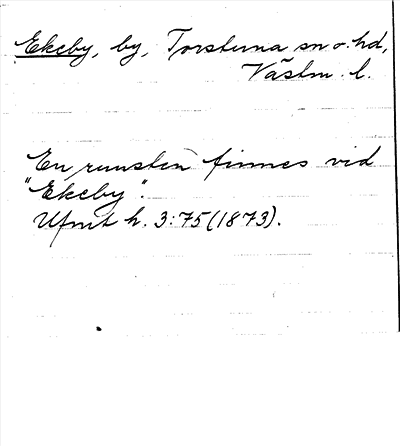 Ekeby, by, Torstuna sn o. hd,
Västm. l.
En runsten finnes vid
"Ekeby".
Ufmt h. 3:75 (1873).